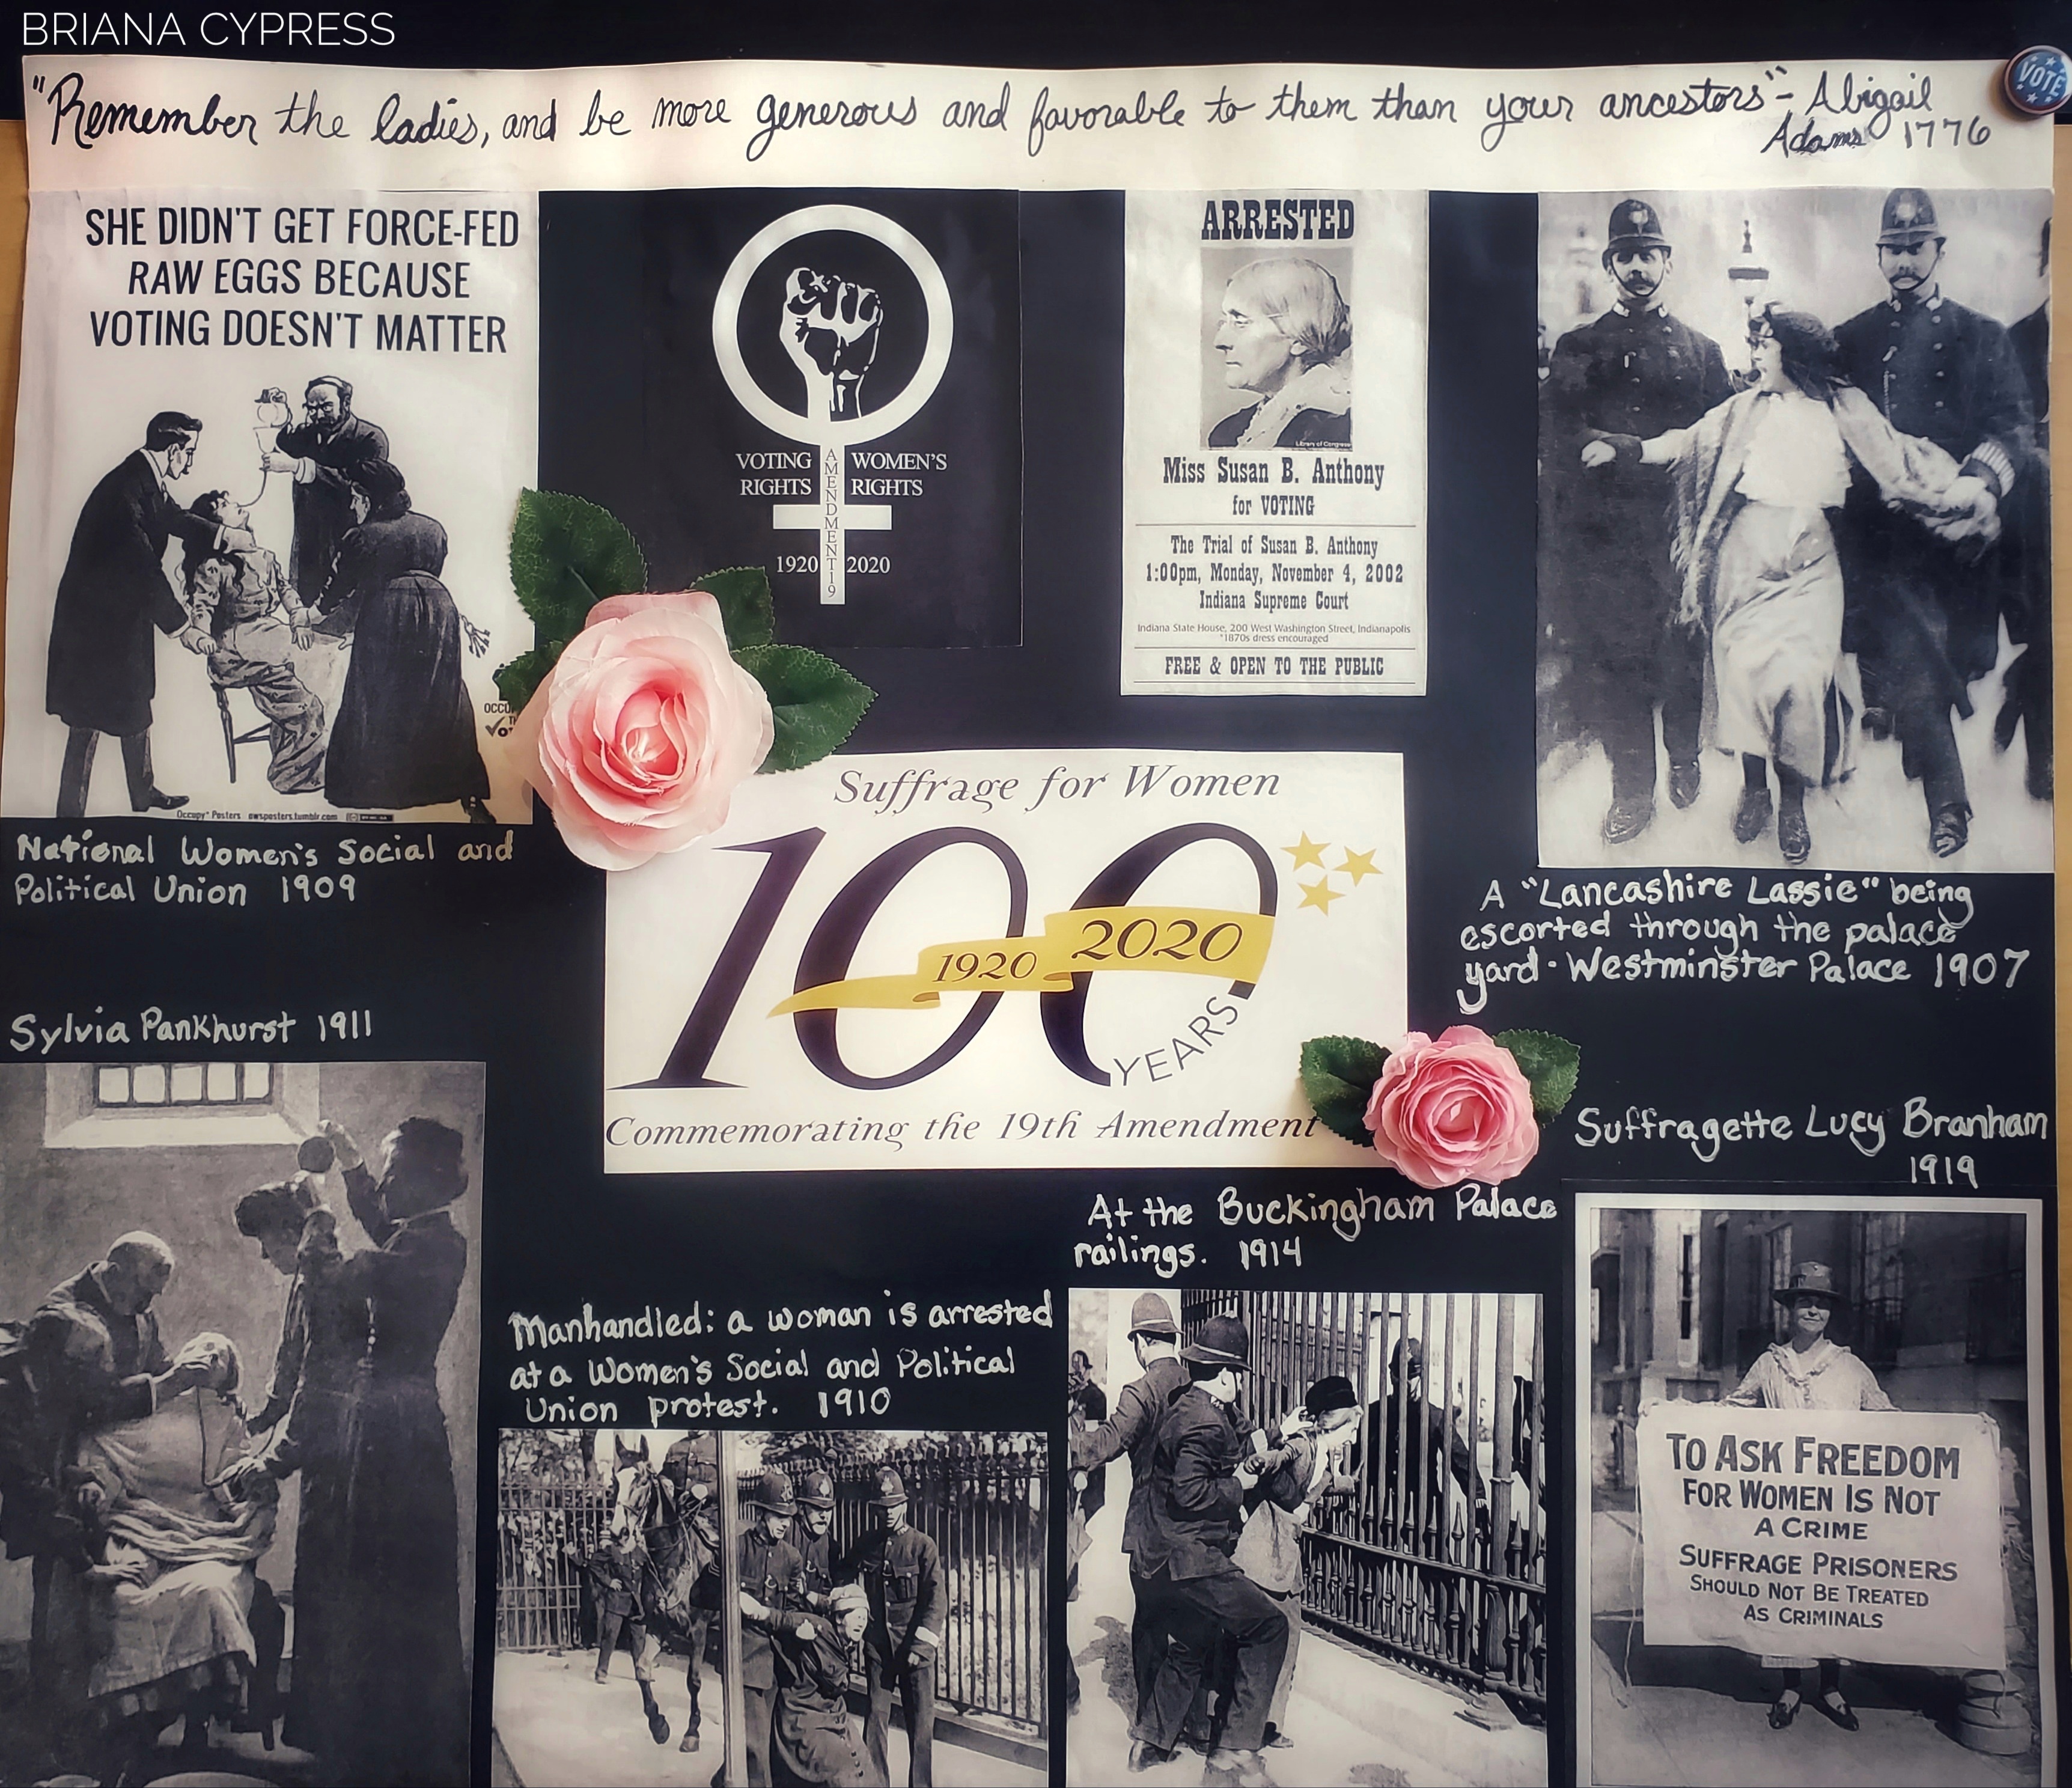 BRIANA CYPRESS
VOTE
"Remember the ladies, and be more generous and favorable to them than your ancestors" - Abigail
Adams 1776
SHE DIDN'T GET FORCE-FED
RAW EGGS BECAUSE
VOTING DOESN'T MATTER
Occupy* Posters owsposters.tumblr.com
National Women's Social and
Political Union 1909
VOTING RIGHTS
WOMEN'S RIGHTS
AMENDMENT 19
1920 2020
ARRESTED
Library of Congress
Miss Susan B. Anthony
for VOTING
The Trial of Susan B. Anthony
1:00pm, Monday, November 4, 2002
Indiana Supreme Court
Indiana State House, 200 West Washington Street, Indianapolis
*1870s dress encouraged
FREE & OPEN TO THE PUBLIC
A "Lancashire Lassie" being
escorted through the palace
yard - Westminster Palace 1907
Suffrage for Women
100
1920 2020
YEARS
Commemorating the 19th Amendment
Sylvia Pankhurst 1911
Manhandled: a woman is arrested
at a Women's Social and Political
Union protest. 1910
At the Buckingham Palace
railings. 1914
Suffragette Lucy Branham
1919
TO ASK FREEDOM
FOR WOMEN IS NOT
A CRIME
SUFFRAGE PRISONERS
SHOULD NOT BE TREATED
AS CRIMINALS